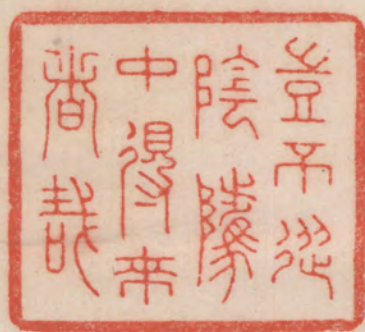 豈不從
陰隲
中得來
者哉